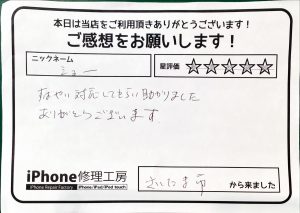 本日は当店をご利用頂きありがとうございます！
ご感想をお願いします！
ニックネーム
ショー
星評価 ☆☆☆☆☆
すばやい対応してもらい助かりました
ありがとうございます
iPhone修理工房
iPhone Repair Factory iPhone/iPad/iPod touch
さいたま市 から来ました